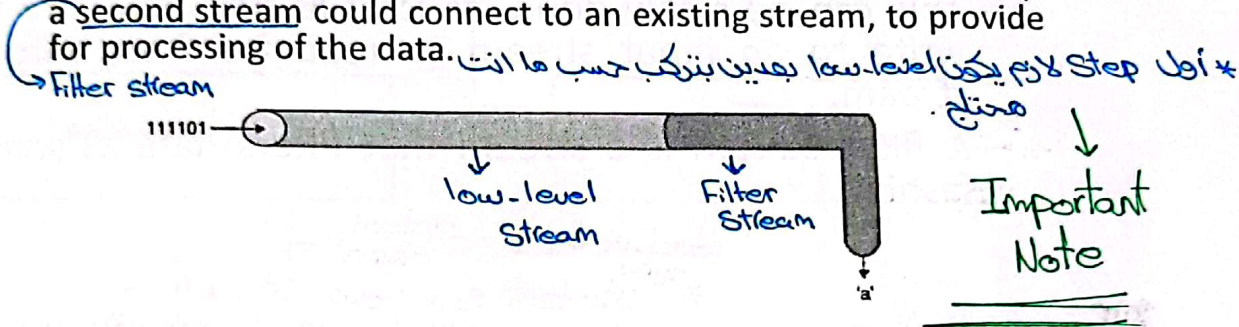 a second stream could connect to an existing stream, to provide
for processing of the data.
* أول Step لازم يكون low-level بعدين بتركب حسب ما انت
محتاج.
Filter stream
111101
low-level
Stream
Filter
Stream
'a'
Important
Note